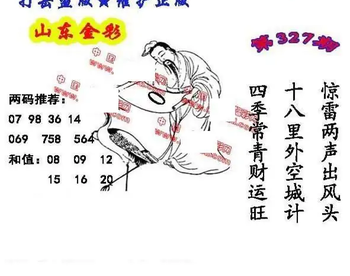 打击盗版 维护正版
山东金彩
第327期
两码推荐：
07 98 36 14
069 758 564
和值： 08 09 12
15 16 20
惊雷两声出风头
十八里外空城计
四季常青财运旺